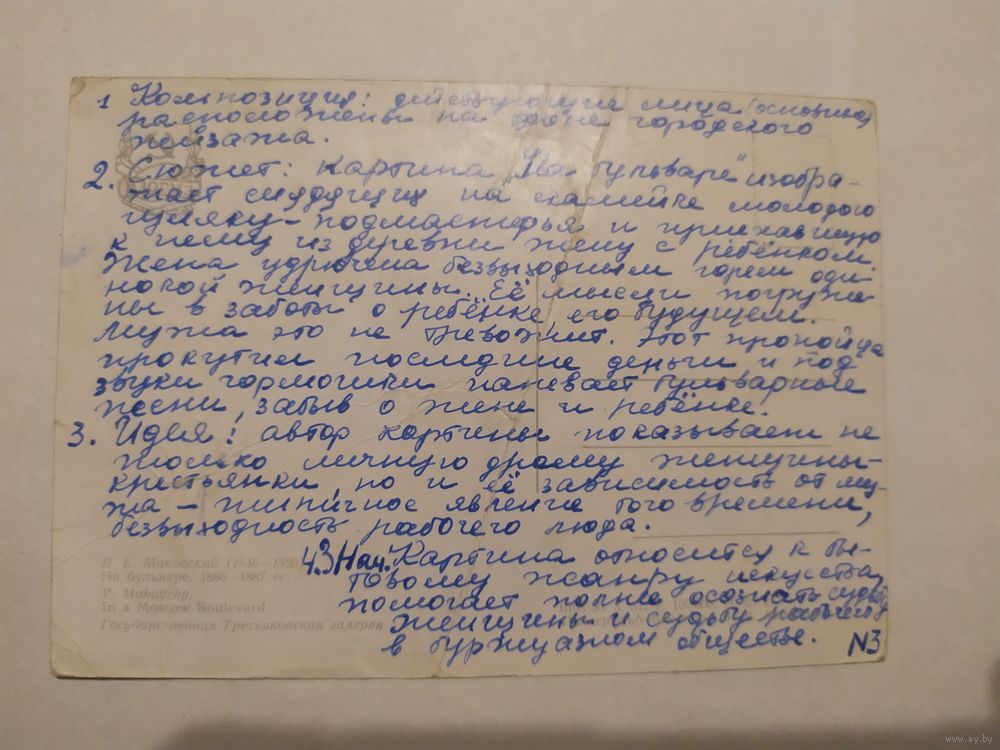 1 Композиция: действующие лица (основные)
расположены на фоне городского
пейзажа.
2. Сюжет: картина „На бульваре" изобра-
жает сидящих на скамейке молодого
гуляку - подмастерья и приехавшую
к нему из деревни жену с ребёнком.
Жена удручена безвыходным горем оди-
нокой женщины. Её мысли погруже
ны в заботы о ребёнке, его будущем.
Мужа это не тревожит. Этот пропойца
прокутил последние деньги и под
звуки гармошки напевает бульварные
песни, забыв о жене и ребёнке.
3. Идея: автор картины показывает не
только личную драму женщины-
крестьянки, но и её зависимость от му-
жа - типичное явление того времени,
безвыходность рабочего люда.
4. Знач. Картина относится к бы-
товому жанру искусства,
помогает полнее осознать судьбу
женщины и судьбу рабочего
в буржуазном обществе.
N3
В. Е. Маковский (1846—1920)
На бульваре. 1886—1887 гг.
V. Makovsky,
In a Moscow Boulevard
Государственная Третьяковская галерея
www.ay.by